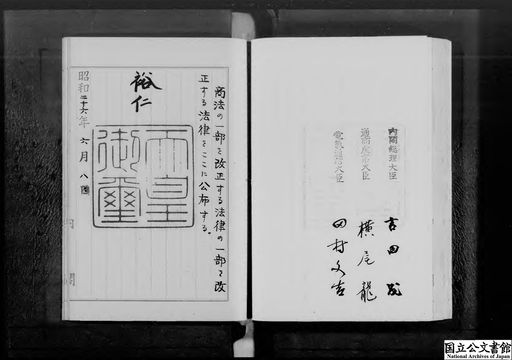 内閣総理大臣
吉田茂
通商産業大臣
横尾龍
電気通信大臣
田村文吉
商法の一部を改正する法律の一部を改
正する法律をここに公布する。
裕仁
天皇
御璽
昭和二十六年六月八日
国立公文書館
National Archives of Japan